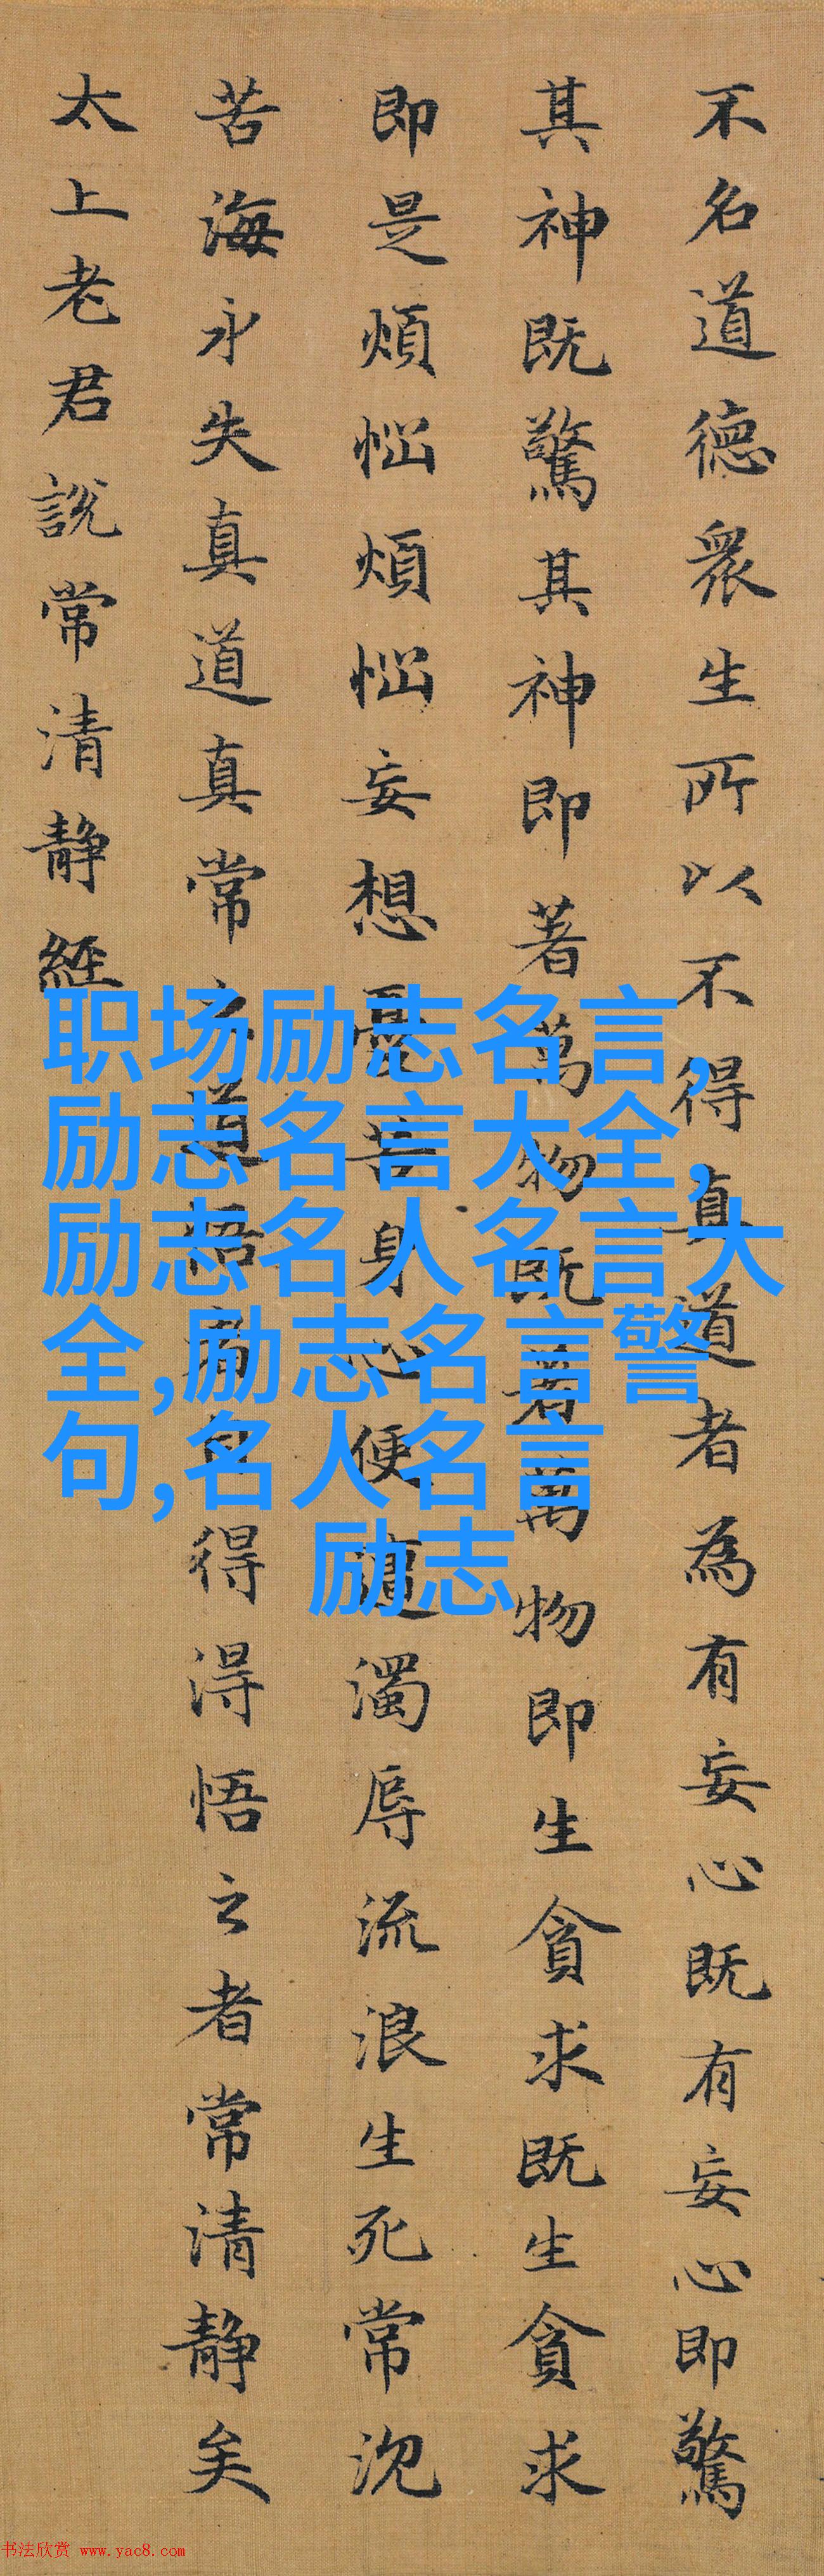 不名道德衆生所以不得真道者為有妄心既有妄心即驚
其神既驚其神即著萬物既著萬物即生貪求既生貪求
即是煩惱煩惱妄想憂苦身心便遭濁辱流浪生死常沉
苦海永失真道真常之道悟者自得得悟之者常清静矣
太上老君說常清静經
职场励志名言,
励志名言大全,
励志名人名言大
全,励志名言警
句,名人名言
励志
书法欣赏 www.yac8.com